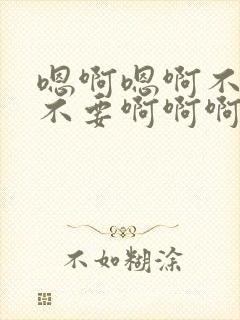 嗯啊嗯啊不
不要啊啊啊
不如糊涂